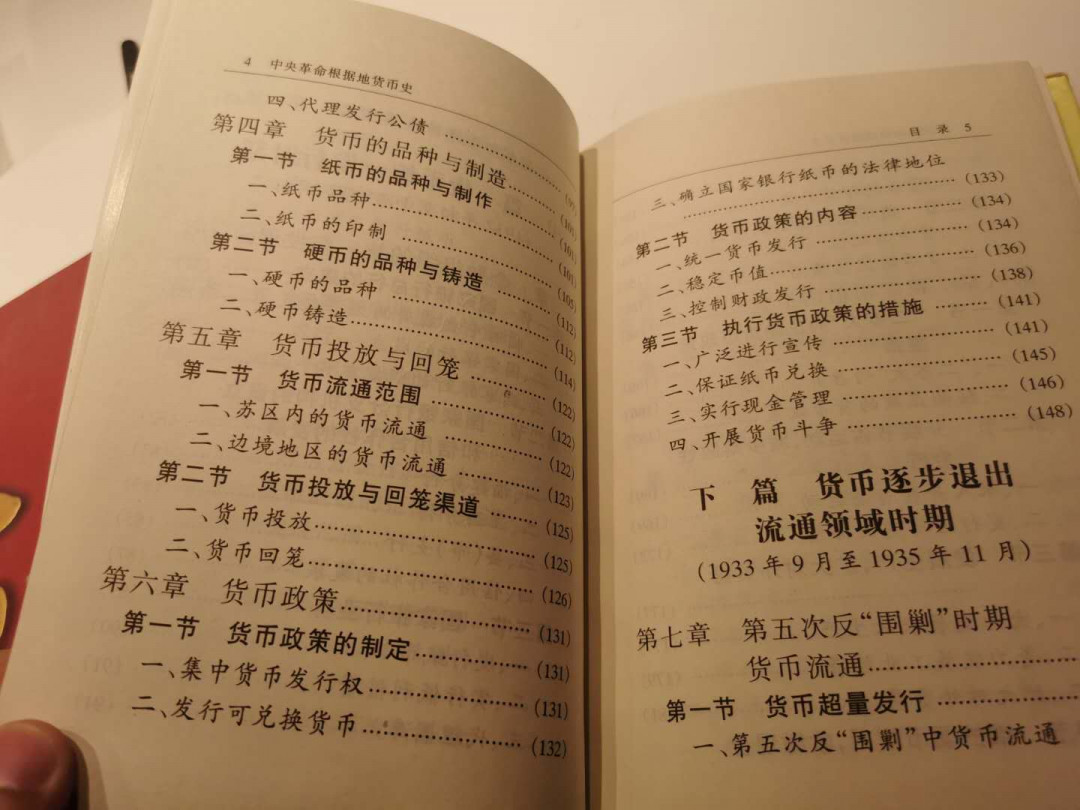 4 中央革命根据地货币史
四、代理发行公债 ……………
第四章 货币的品种与制造…… (101)
第一节 纸币的品种与制作 …… (101)
一、纸币品种…………… (101)
二、纸币的印制 …………… (105)
第二节 硬币的品种与铸造 …… (112)
一、硬币的品种 …………… (112)
二、硬币铸造…………… (114)
第五章 货币投放与回笼 …… (122)
第一节 货币流通范围 …… (122)
一、苏区内的货币流通 …… (122)
二、边境地区的货币流通 …… (123)
第二节 货币投放与回笼渠道 …… (125)
一、货币投放…………… (125)
二、货币回笼…………… (126)
第六章 货币政策…………… (131)
第一节 货币政策的制定 …… (131)
一、集中货币发行权 …… (131)
二、发行可兑换货币 …… (132)
目 录 5
三、确立国家银行纸币的法律地位
…………… (133)
第二节 货币政策的内容 …… (134)
一、统一货币发行 …… (134)
二、稳定币值…………… (136)
三、控制财政发行 …… (138)
第三节 执行货币政策的措施 …… (141)
一、广泛进行宣传 …… (141)
二、保证纸币兑换 …… (145)
三、实行现金管理 …… (146)
四、开展货币斗争 …… (148)
下 篇 货币逐步退出
流通领域时期
(1933 年 9 月至 1935 年 11 月)
第七章 第五次反“围剿”时期
货币流通……………
第一节 货币超量发行 ……
一、第五次反“围剿”中货币流通